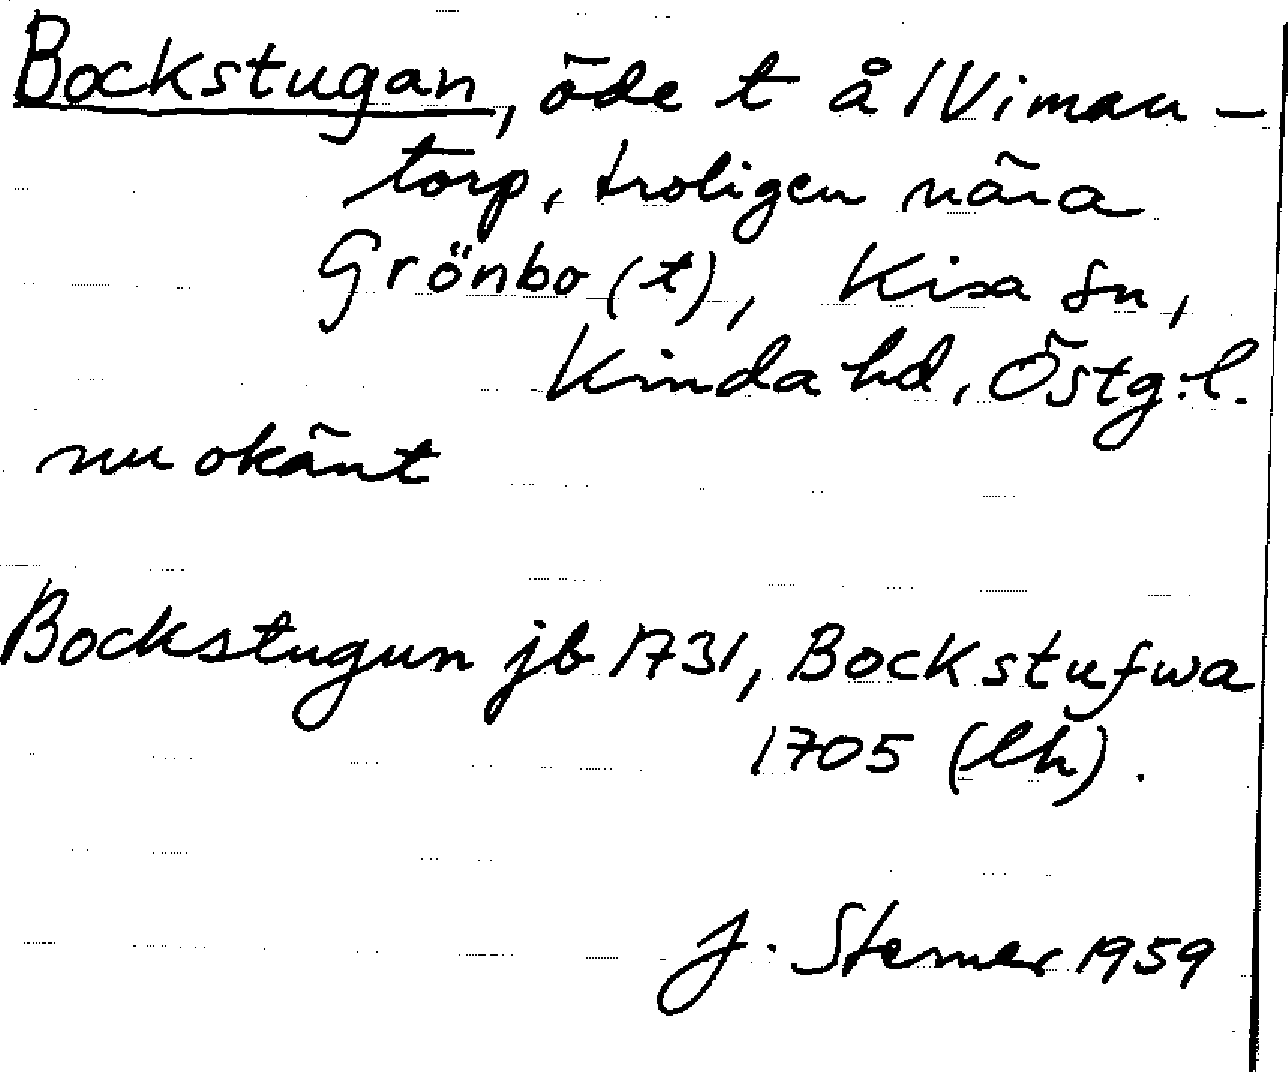 Bockstugan, öde t å 1 Viman-
torp, troligen nära
Grönbo (t), Kisa sn,
Kinda hd, Östg. l.
nu okänt
Bockstugun jb 1731, Bockstufwa
1705 (lh).
J. Sterner 1959